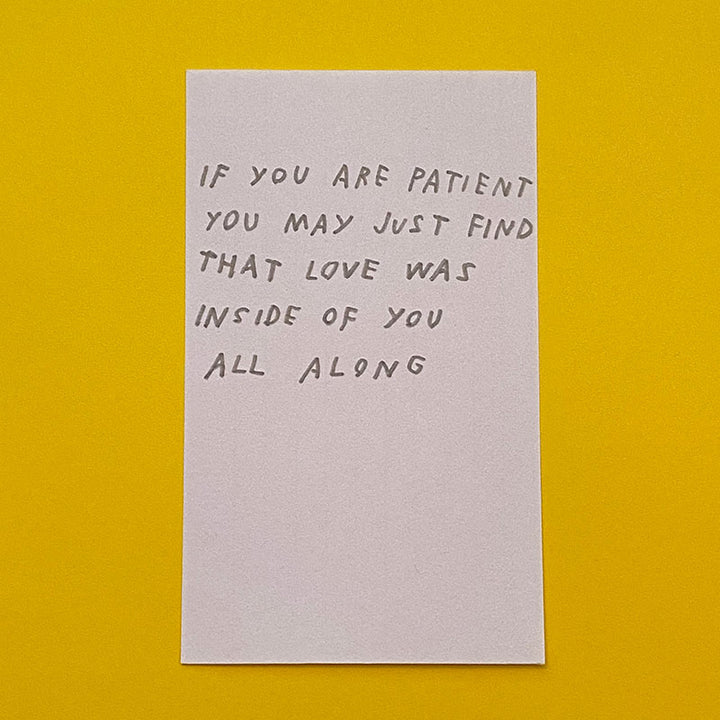 IF YOU ARE PATIENT
YOU MAY JUST FIND
THAT LOVE WAS
INSIDE OF YOU
ALL ALONG